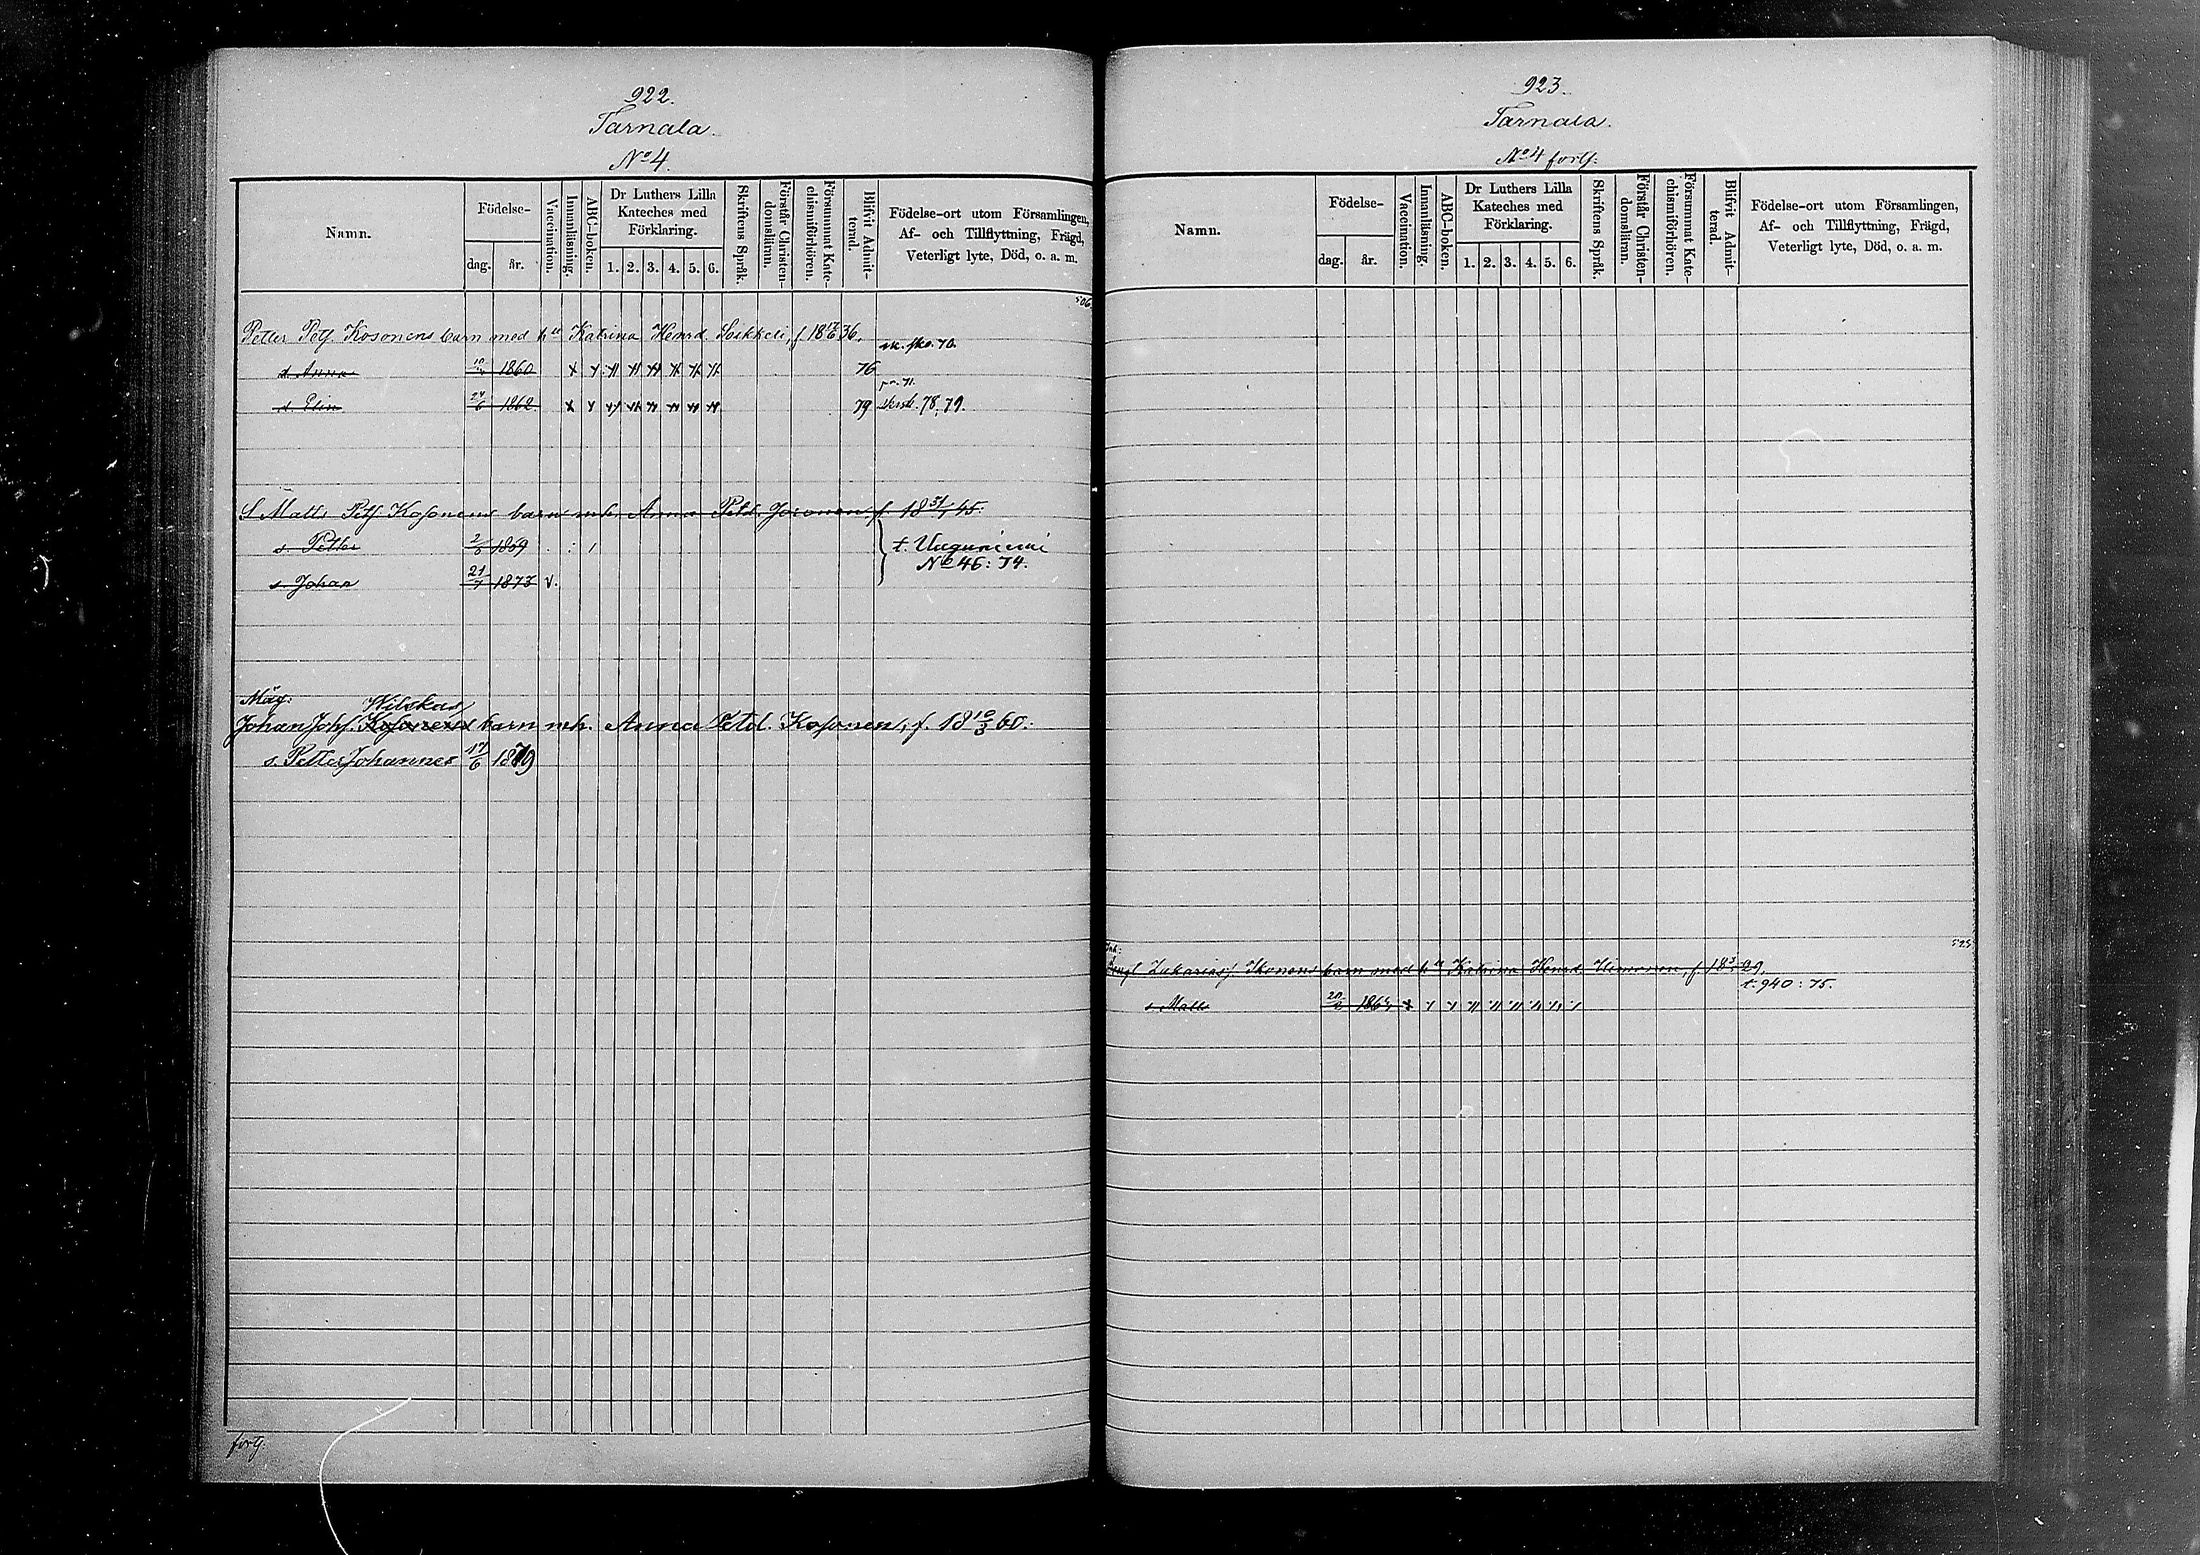 922.
Tarnala.
No 4.
Namn.
Födelse-
dag.
år.
Vaccination.
Innanläsning.
ABC-boken.
Dr Luthers Lilla
Kateches med
Förklaring.
1. 2. 3. 4. 5. 6.
Skriftens Språk.
Förstår Christen-
domslänn.
Försummat Kate-
chismiförhören.
Blifvit Admit-
terad.
Födelse-ort utom Församlingen,
Af- och Tillflyttning, Frägd,
Veterligt lyte, Död, o. a. m.
506
Petter Petf. Kosonens barn med h:u Katrina Henrd. Soikkeli, f. 18 36.
d. Anna 1860 76
d. Elin 1862 79 78, 79.
S. Matts Petf Kosonens barn mh. Anna Petd. f 18 31/1 45.
s. Petter 1869
t.
No 46: 74.
s. Johan 21/7 1873 v.
Måg:
Wilskas
Johan Johf. Kosonens barn mh. Anna Petd. Kosonen, f. 18 10/3 60.
s. Petter Johannes 17/6 1879
forts.
923.
Tarnala.
No 4 forts:
Namn.
Födelse-
dag.
år.
Vaccination.
Innanläsning.
ABC-boken.
Dr Luthers Lilla
Kateches med
Förklaring.
1. 2. 3. 4. 5. 6.
Skriftens Språk.
Förstår Christen-
domsläran.
Försummat Kate-
chismiförhören.
Blifvit Admit-
terad.
Födelse-ort utom Församlingen,
Af- och Tillflyttning, Frägd,
Veterligt lyte, Död, o. a. m.
525
Inh:
Bengt Zakariasf. Ikonens barn med h:u Katrina Henrd. f. 18 29.
t. 940: 75.
s. Matts